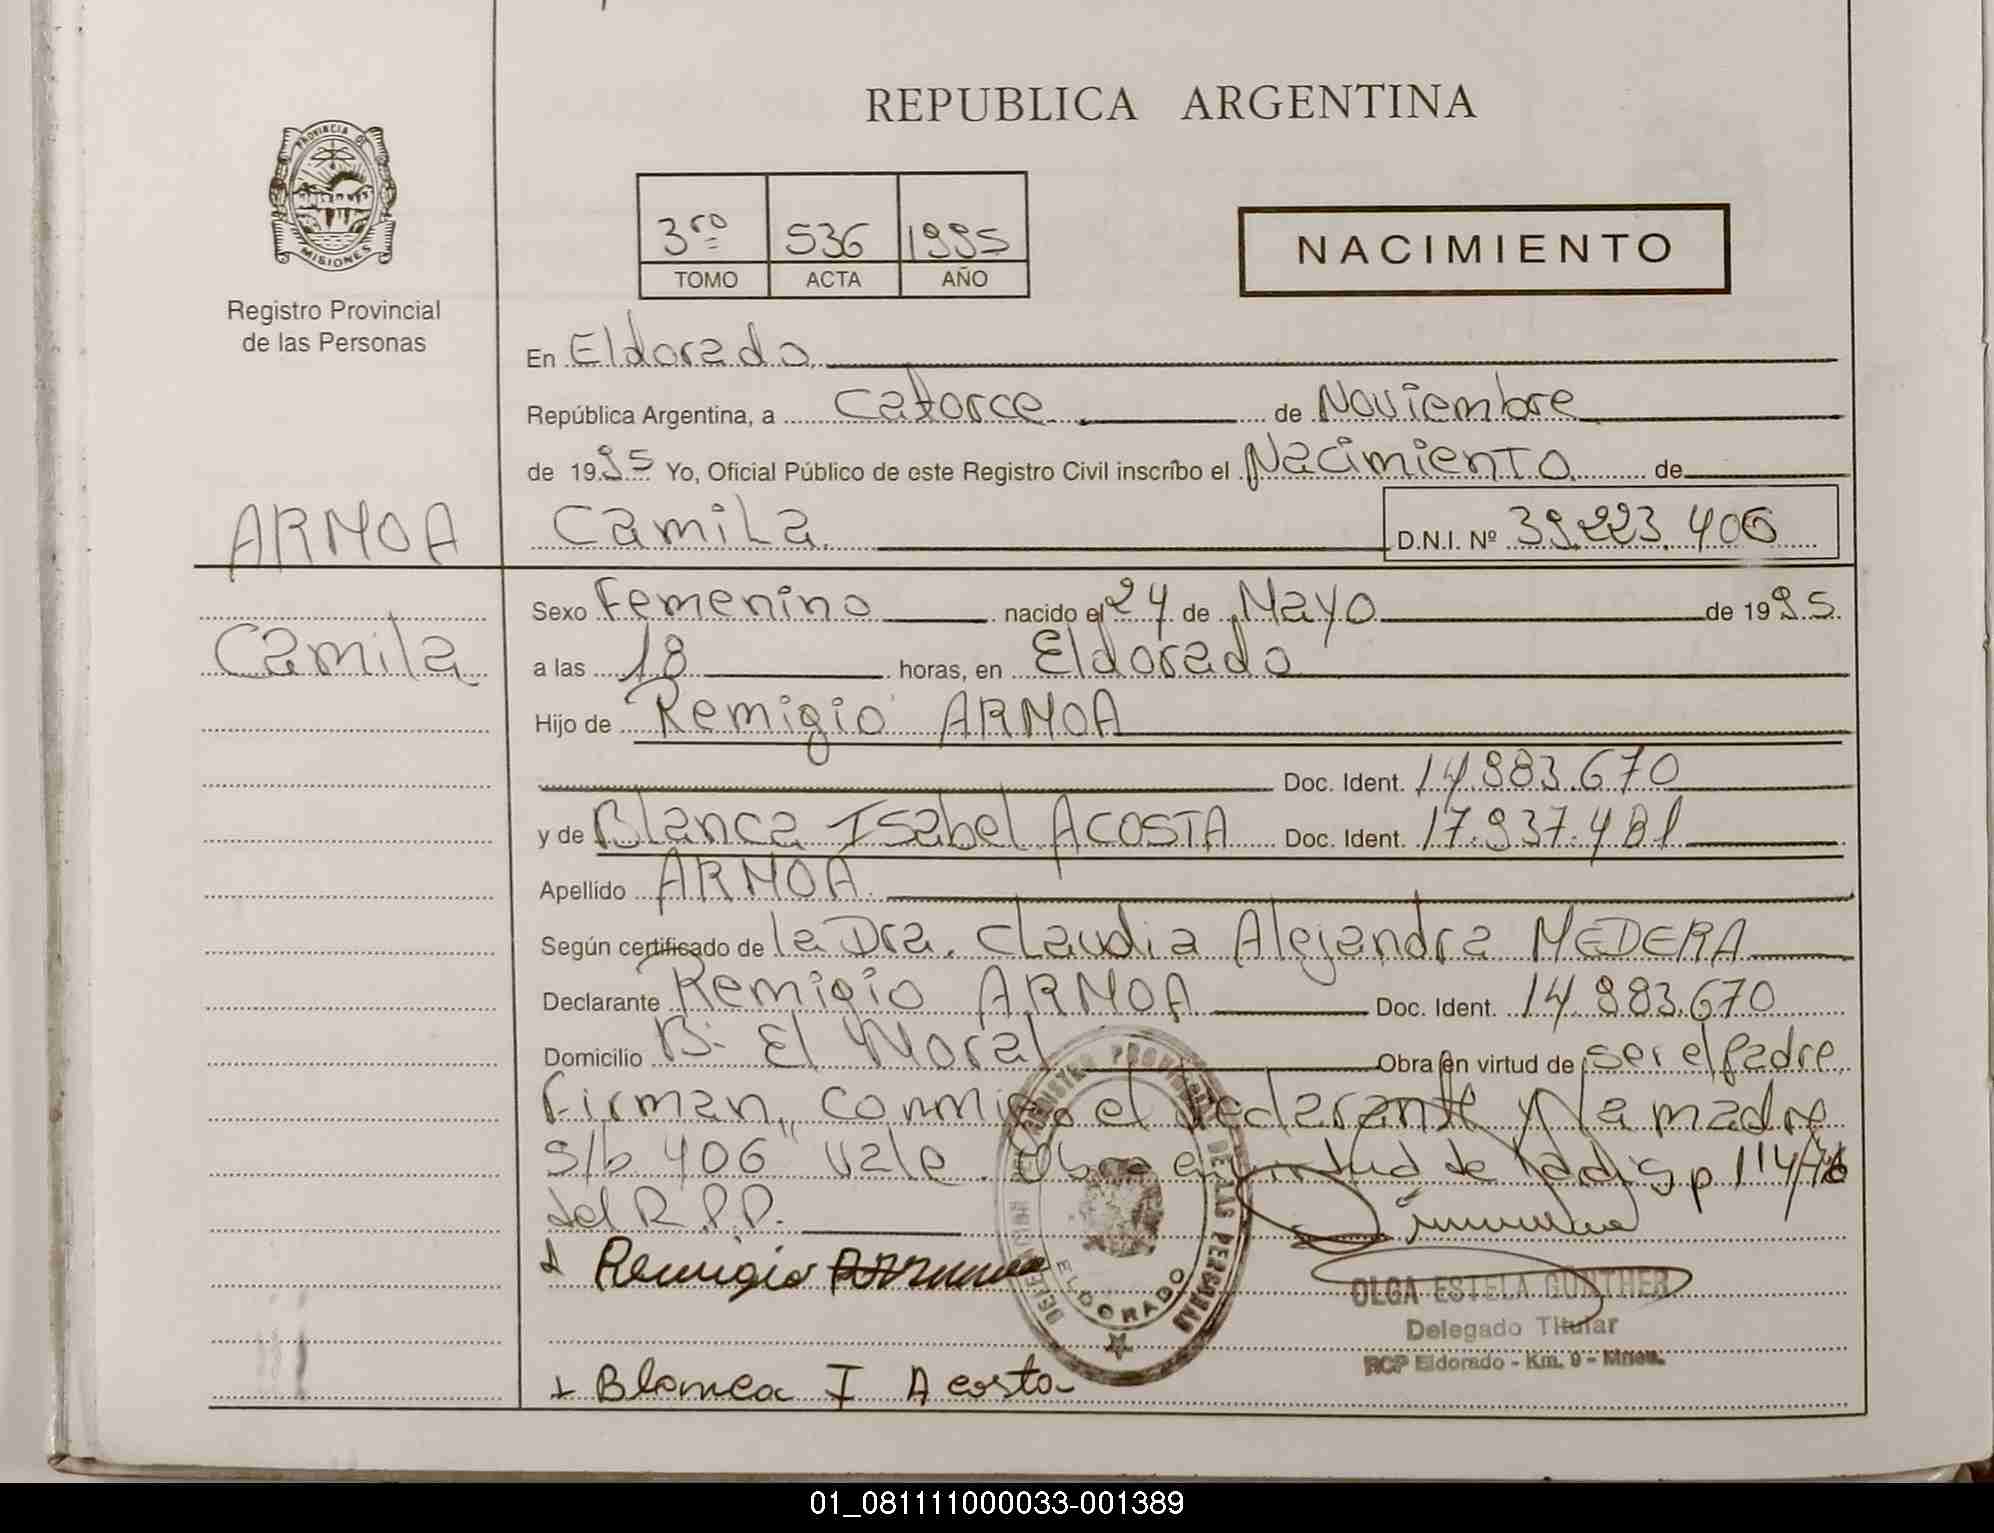 REPUBLICA ARGENTINA
PROVINCIA DE MISIONES
Registro Provincial
de las Personas
3ro 536 1995
TOMO ACTA AÑO
NACIMIENTO
En Eldorado
República Argentina, a Catorce de Noviembre
de 1995 Yo, Oficial Público de este Registro Civil inscribo el Nacimiento de
ARMOA
Camila
Camila. D.N.I. Nº 39.223.406
Sexo Femenino nacido el 24 de Mayo de 1995.
a las 18 horas, en Eldorado
Hijo de Remigio ARMOA
Doc. Ident. 14.983.670
y de Blanca Isabel ACOSTA Doc. Ident. 17.937.481
Apellido ARMOA
Según certificado de la Dra. Claudia Alejandra MEDERA
Declarante Remigio ARMOA Doc. Ident. 14.983.670
Domicilio B: El Moral Obra en virtud de ser el padre,
Firman, conmigo el declarante y la madre
s/b 406" vale. Obra en virtud de la disp 114/
del R.P.P.
Remigio
OLGA ESTELA GUNTHER
Delegado Titular
RCP Eldorado - Km. 9 - Mnes.
Blanca I Acosta
ELDORADO
01_081111000033-001389